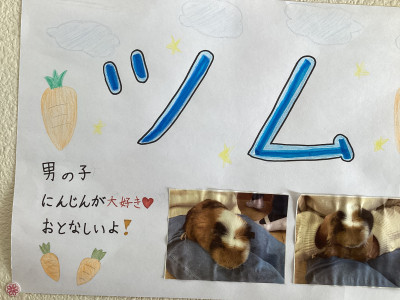 ツム
男の子
にんじんが大好き♥
おとなしいよ!